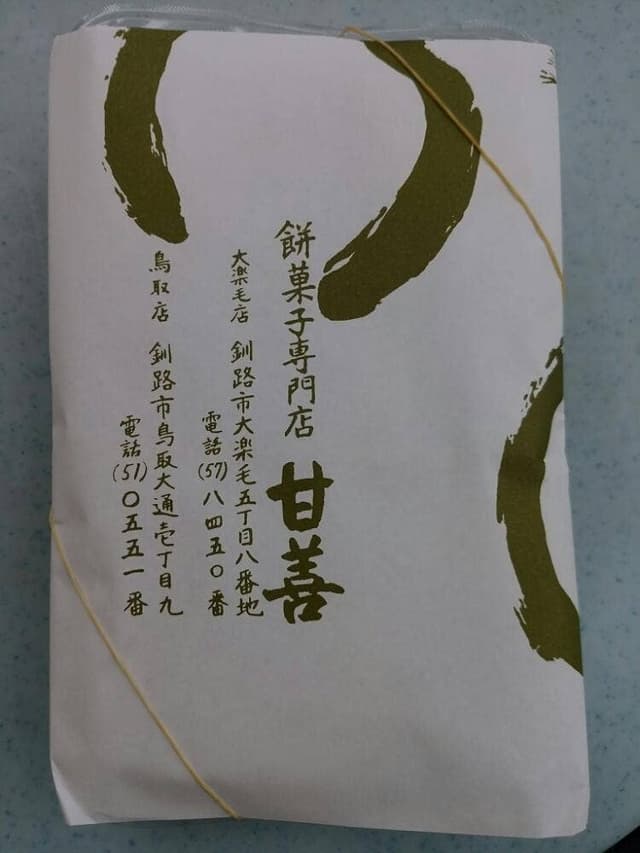 餅菓子専門店 甘善
大楽毛店 釧路市大楽毛五丁目八番地
電話(57)八四五〇番
鳥取店 釧路市鳥取大通壱丁目九
電話(51)〇五五一番